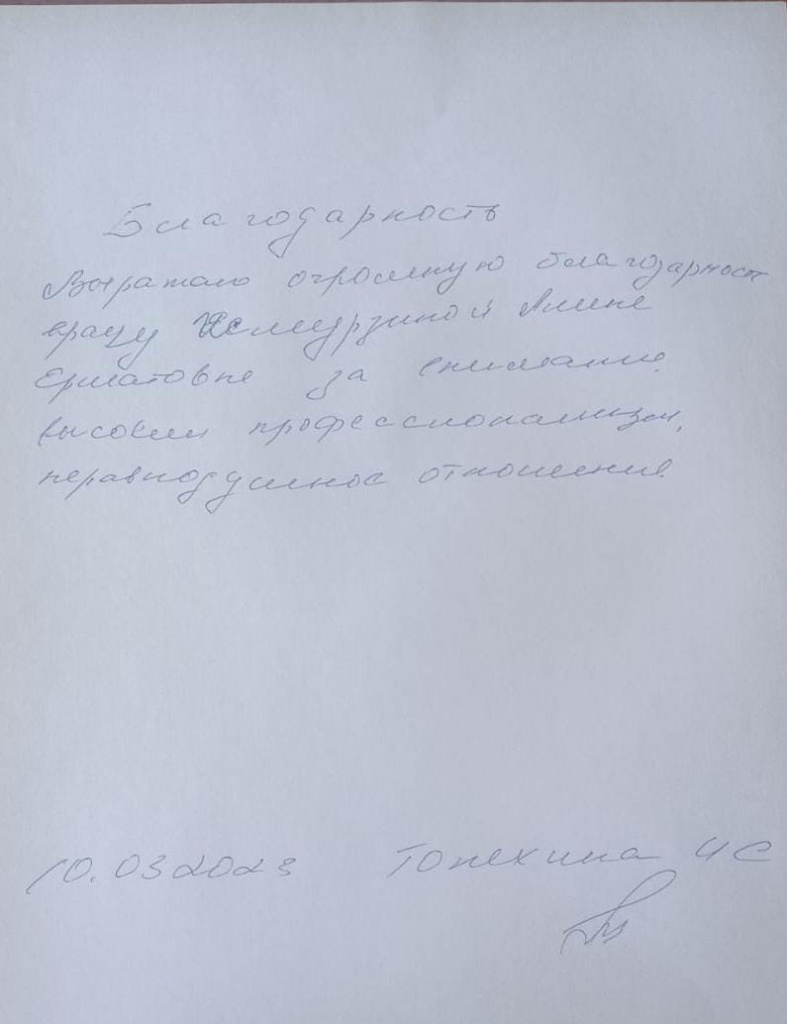 Благодарность
Выражаю огромную благодарность
врачу Исмурзиной Алине
Ерматовне за внимание
высокий профессионализм,
неравнодушное отношение.
10.03 2023 Топехина И С